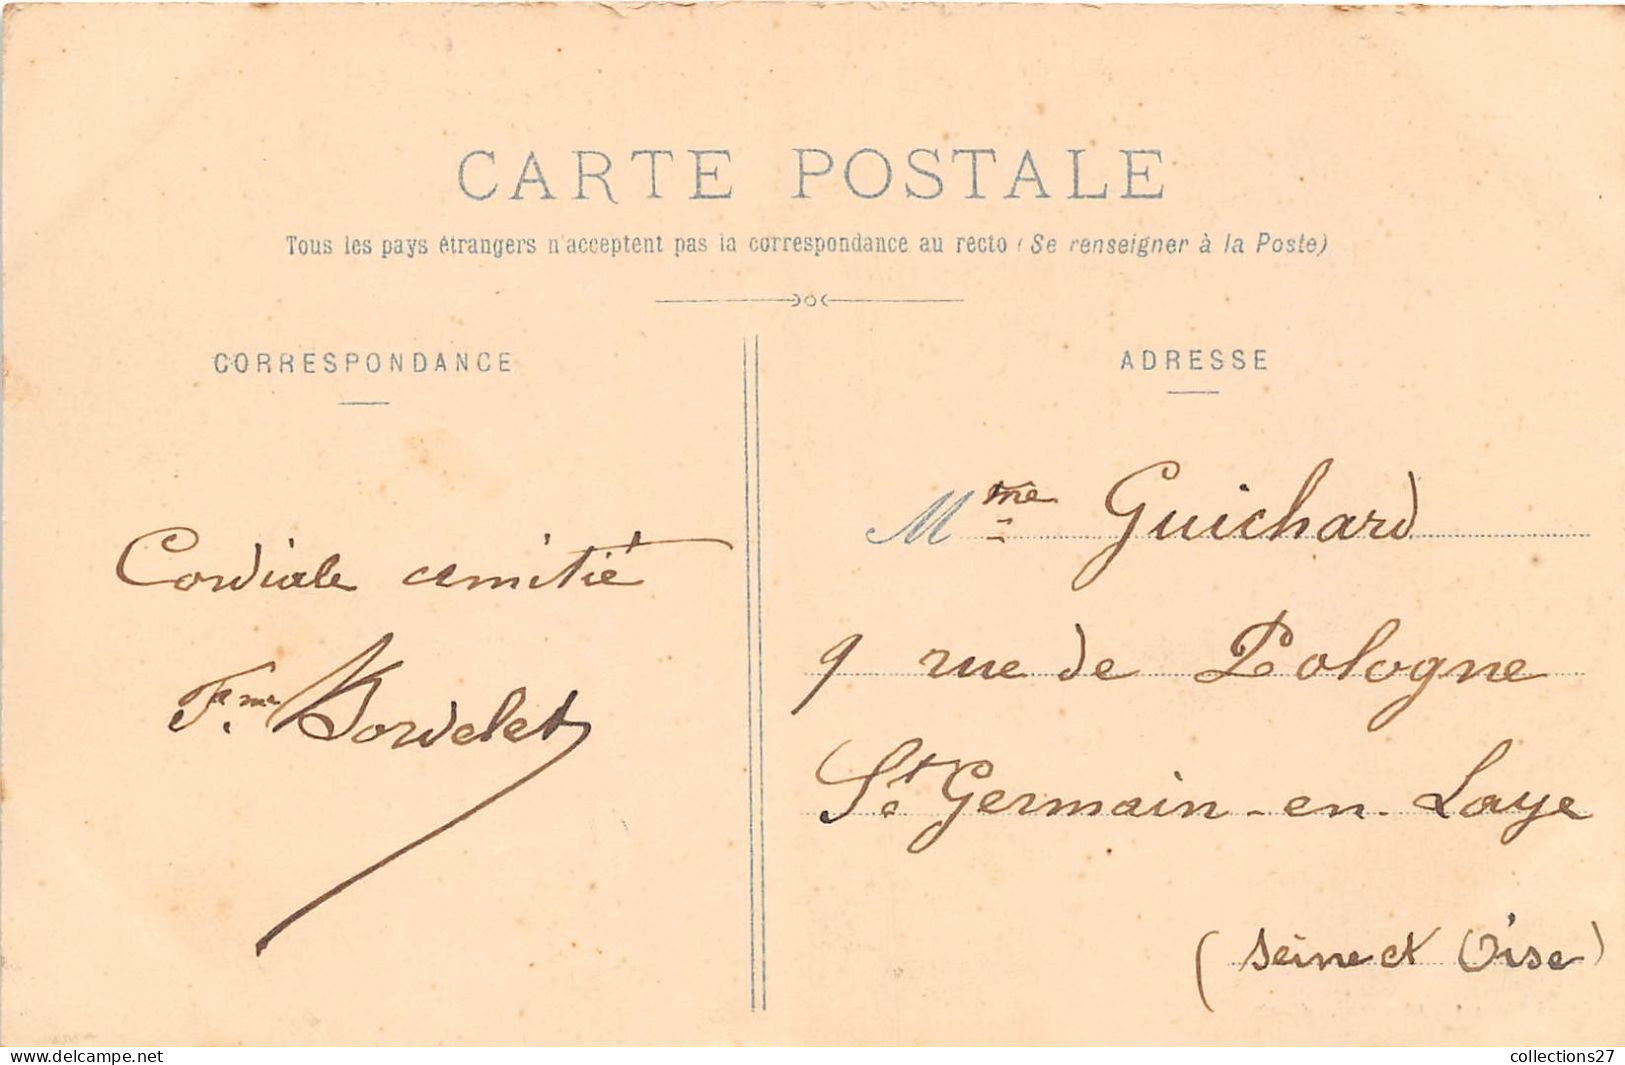 CARTE POSTALE
Tous les pays étrangers n'acceptent pas la correspondance au recto (Se renseigner à la Poste)
CORRESPONDANCE
ADRESSE
Cordiale amitié
Mme Guichard
9 rue de Pologne
St Germain-en-Laye
(Seine et Oise)
https://www.delcampe.net
collections27